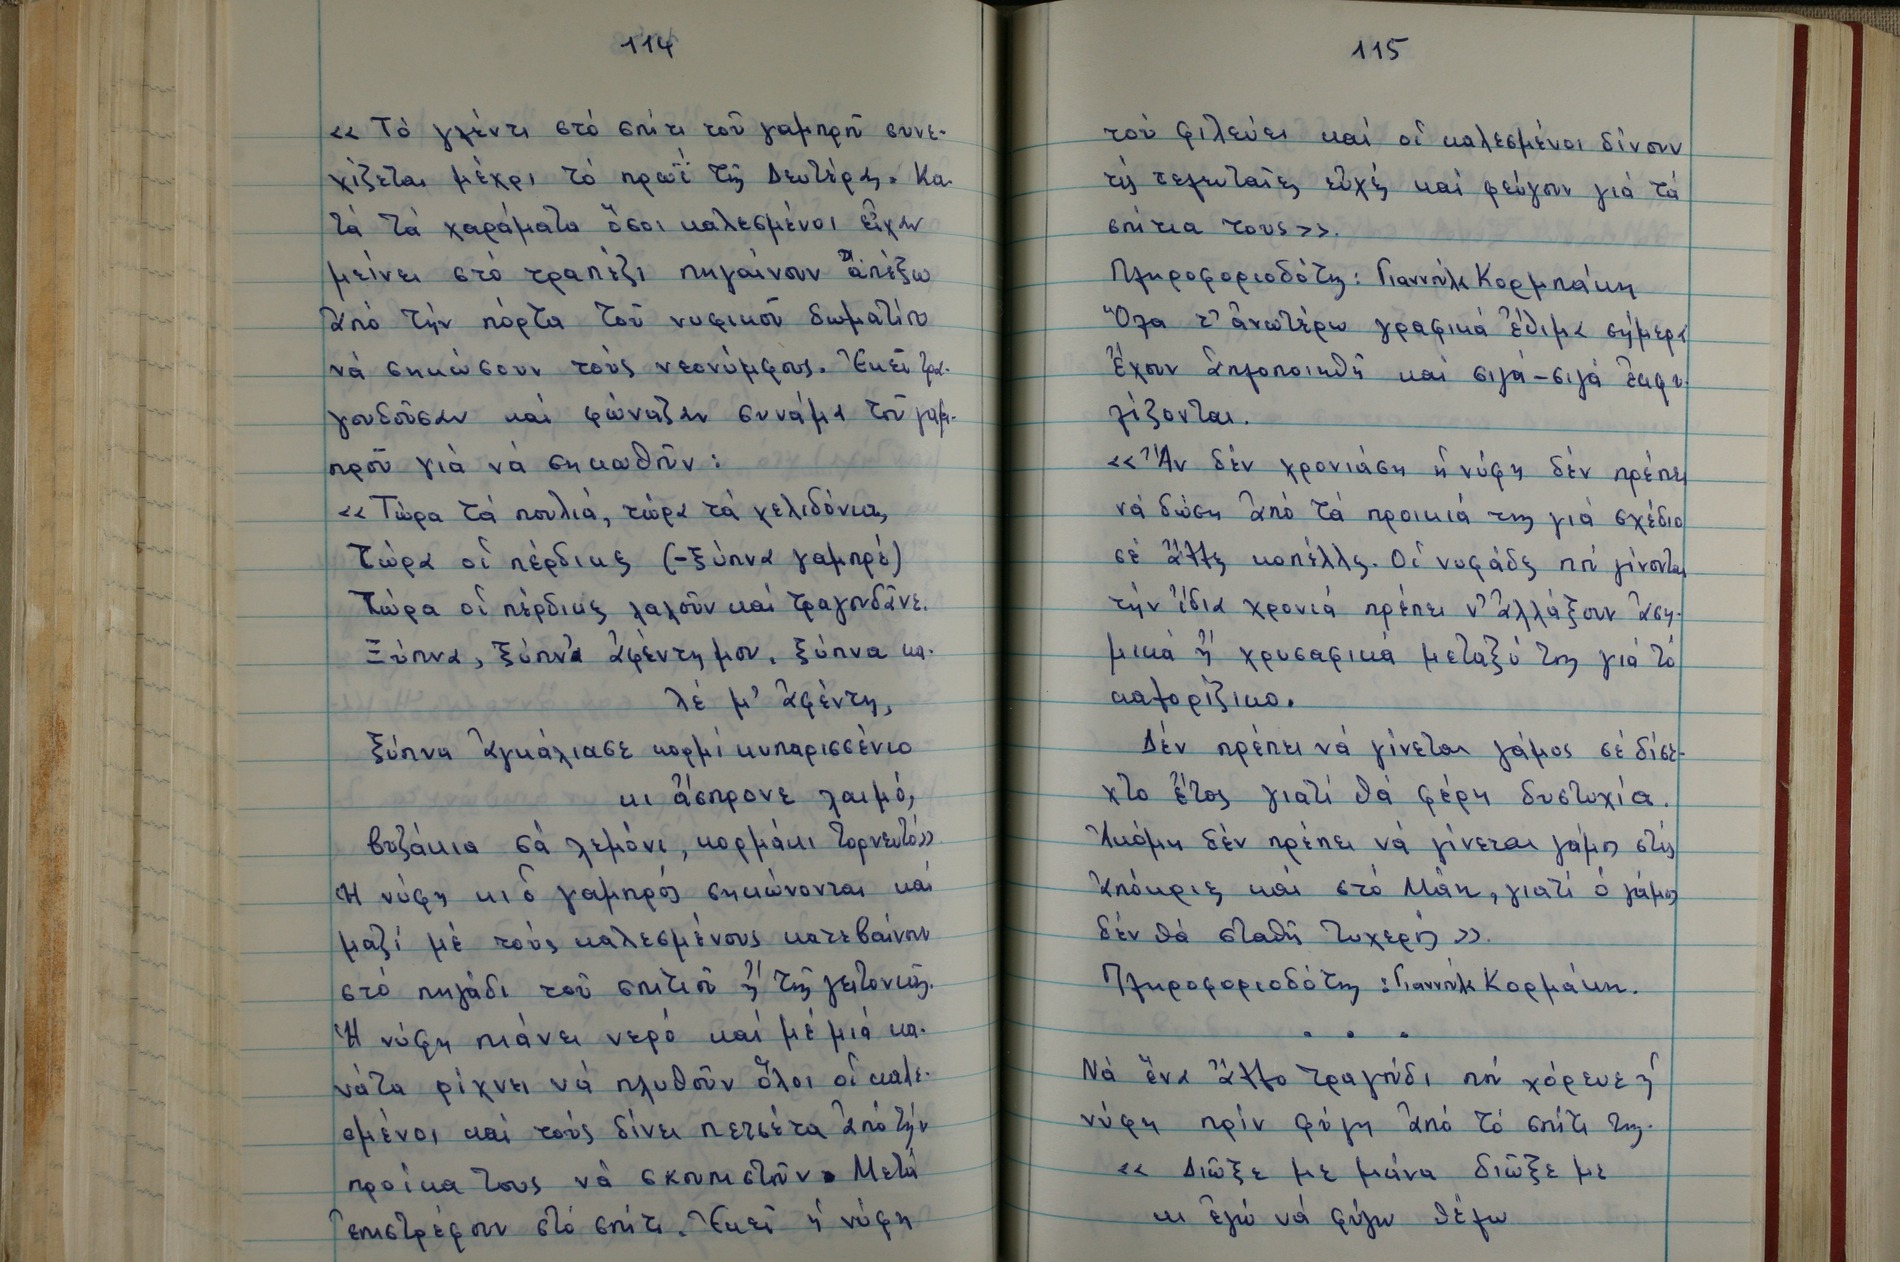 114
«Τό γλέντι στό σπίτι τοῦ γαμπροῦ συνε-
χίζεται μέχρι τό πρωΐ τῆς Δευτέρας. Κα-
τά τά χαράματα ὅσοι καλεσμένοι εἶχαν
μείνει στό τραπέζι πηγαίνουν ἀπέξω
ἀπό τήν πόρτα τοῦ νυφικοῦ δωματίου
νά σηκώσουν τούς νεονύμφους. Ἐκεῖ τρα-
γουδοῦσαν καί φώναζαν συνάμα τοῦ γαμ-
προῦ γιά νά σηκωθοῦν:
«Τώρα τά πουλιά, τώρα τά χελιδόνια,
τώρα οἱ πέρδικες (-ξύπνα γαμπρέ)
τώρα οἱ πέρδικες λαλοῦν καί τραγουδᾶνε.
Ξύπνα, ξύπνα ἀφέντη μου, ξύπνα κα-
λέ μ' ἀφέντη,
ξύπνα ἀγκάλιασε κορμί κυπαρισσένιο
κι ἄσπρονε λαιμό,
βυζάκια σά λεμόνι, κορμάκι τορνευτό»
Ἡ νύφη κι ὁ γαμπρός σηκώνονται καί
μαζί μέ τούς καλεσμένους κατεβαίνουν
στό πηγάδι τοῦ σπιτιοῦ ἤ τῆς γειτονιᾶς.
Ἡ νύφη πιάνει νερό καί μέ μιά κα-
νάτα ρίχνει νά πλυθοῦν ὅλοι οἱ καλε-
σμένοι καί τούς δίνει πετσέτα ἀπό τήν
προίκα τους νά σκουπιστοῦν. Μετά
ἐπιστρέφουν στό σπίτι. Ἐκεῖ ἡ νύφη
115
τού φιλεύει καί οἱ καλεσμένοι δίνουν
τίς τελευταῖες εὐχές καί φεύγουν γιά τά
σπίτια τους».
Πληροφοριοδότης: Γιαννούλα Κορμπάκη
Ὅλα τ' ἀνωτέρω γραφικά ἔθιμα σήμερα
ἔχουν ἁπλοποιηθῆ καί σιγά-σιγά ἐκφυ-
λίζονται.
«Ἄν δέν χρονιάση ἡ νύφη δέν πρέπει
νά δώση ἀπό τά προικιά της γιά σχέδιο
σέ ἄλλες κοπέλλες. Οἱ νυφάδες πού γίνονται
τήν ἴδια χρονιά πρέπει ν' ἀλλάξουν ἀση-
μικά ἤ χρυσαφικά μεταξύ της γιά τό
καλορίζικο.
Δέν πρέπει νά γίνεται γάμος σέ δίσε-
χτο ἔτος γιατί θά φέρη δυστυχία.
Ἀκόμη δέν πρέπει νά γίνεται γάμος στίς
ἀπόκριες καί στό Μάη, γιατί ὁ γάμος
δέν θά σταθῆ τυχερός».
Πληροφοριοδότης: Γιαννούλα Κορμάκη.
. . .
Νά ἕνα ἄλλο τραγούδι πού χόρευε ἡ
νύφη πρίν φύγη ἀπό τό σπίτι της.
« Διῶξε με μάνα διῶξε με
κι ἐγώ νά φύγω θέλω